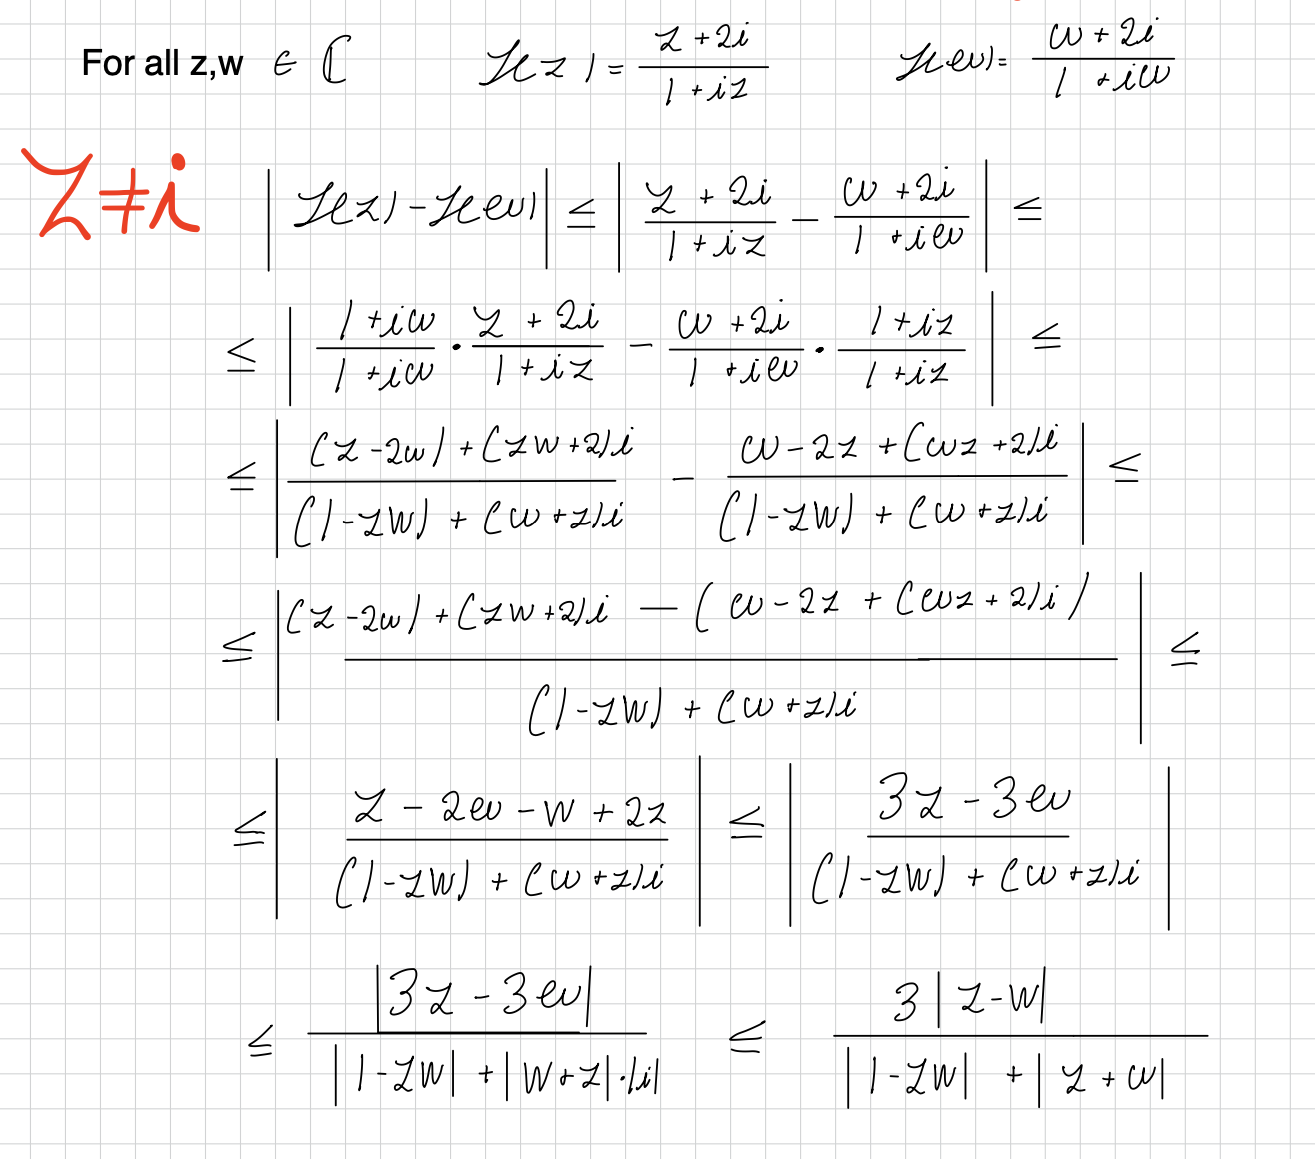 For all z,w ∈ ℂ f(z) = (z + 2i)/(1 + iz) f(w) = (w + 2i)/(1 + iw)
z ≠ i
| f(z) - f(w) | ≤ | (z + 2i)/(1 + iz) - (w + 2i)/(1 + iw) | ≤
≤ | (1 + iw)/(1 + iw) · (z + 2i)/(1 + iz) - (w + 2i)/(1 + iw) · (1 + iz)/(1 + iz) | ≤
≤ | ((z - 2w) + (zw + 2)i)/((1 - zw) + (w + z)i) - (w - 2z + (wz + 2)i)/((1 - zw) + (w + z)i) | ≤
≤ | ((z - 2w) + (zw + 2)i - (w - 2z + (wz + 2)i))/((1 - zw) + (w + z)i) | ≤
≤ | (z - 2w - w + 2z)/((1 - zw) + (w + z)i) | ≤ | (3z - 3w)/((1 - zw) + (w + z)i) |
≤ |3z - 3w|/(|1 - zw| + |w + z| · |i|) ≤ 3|z - w|/(|1 - zw| + |z + w|)